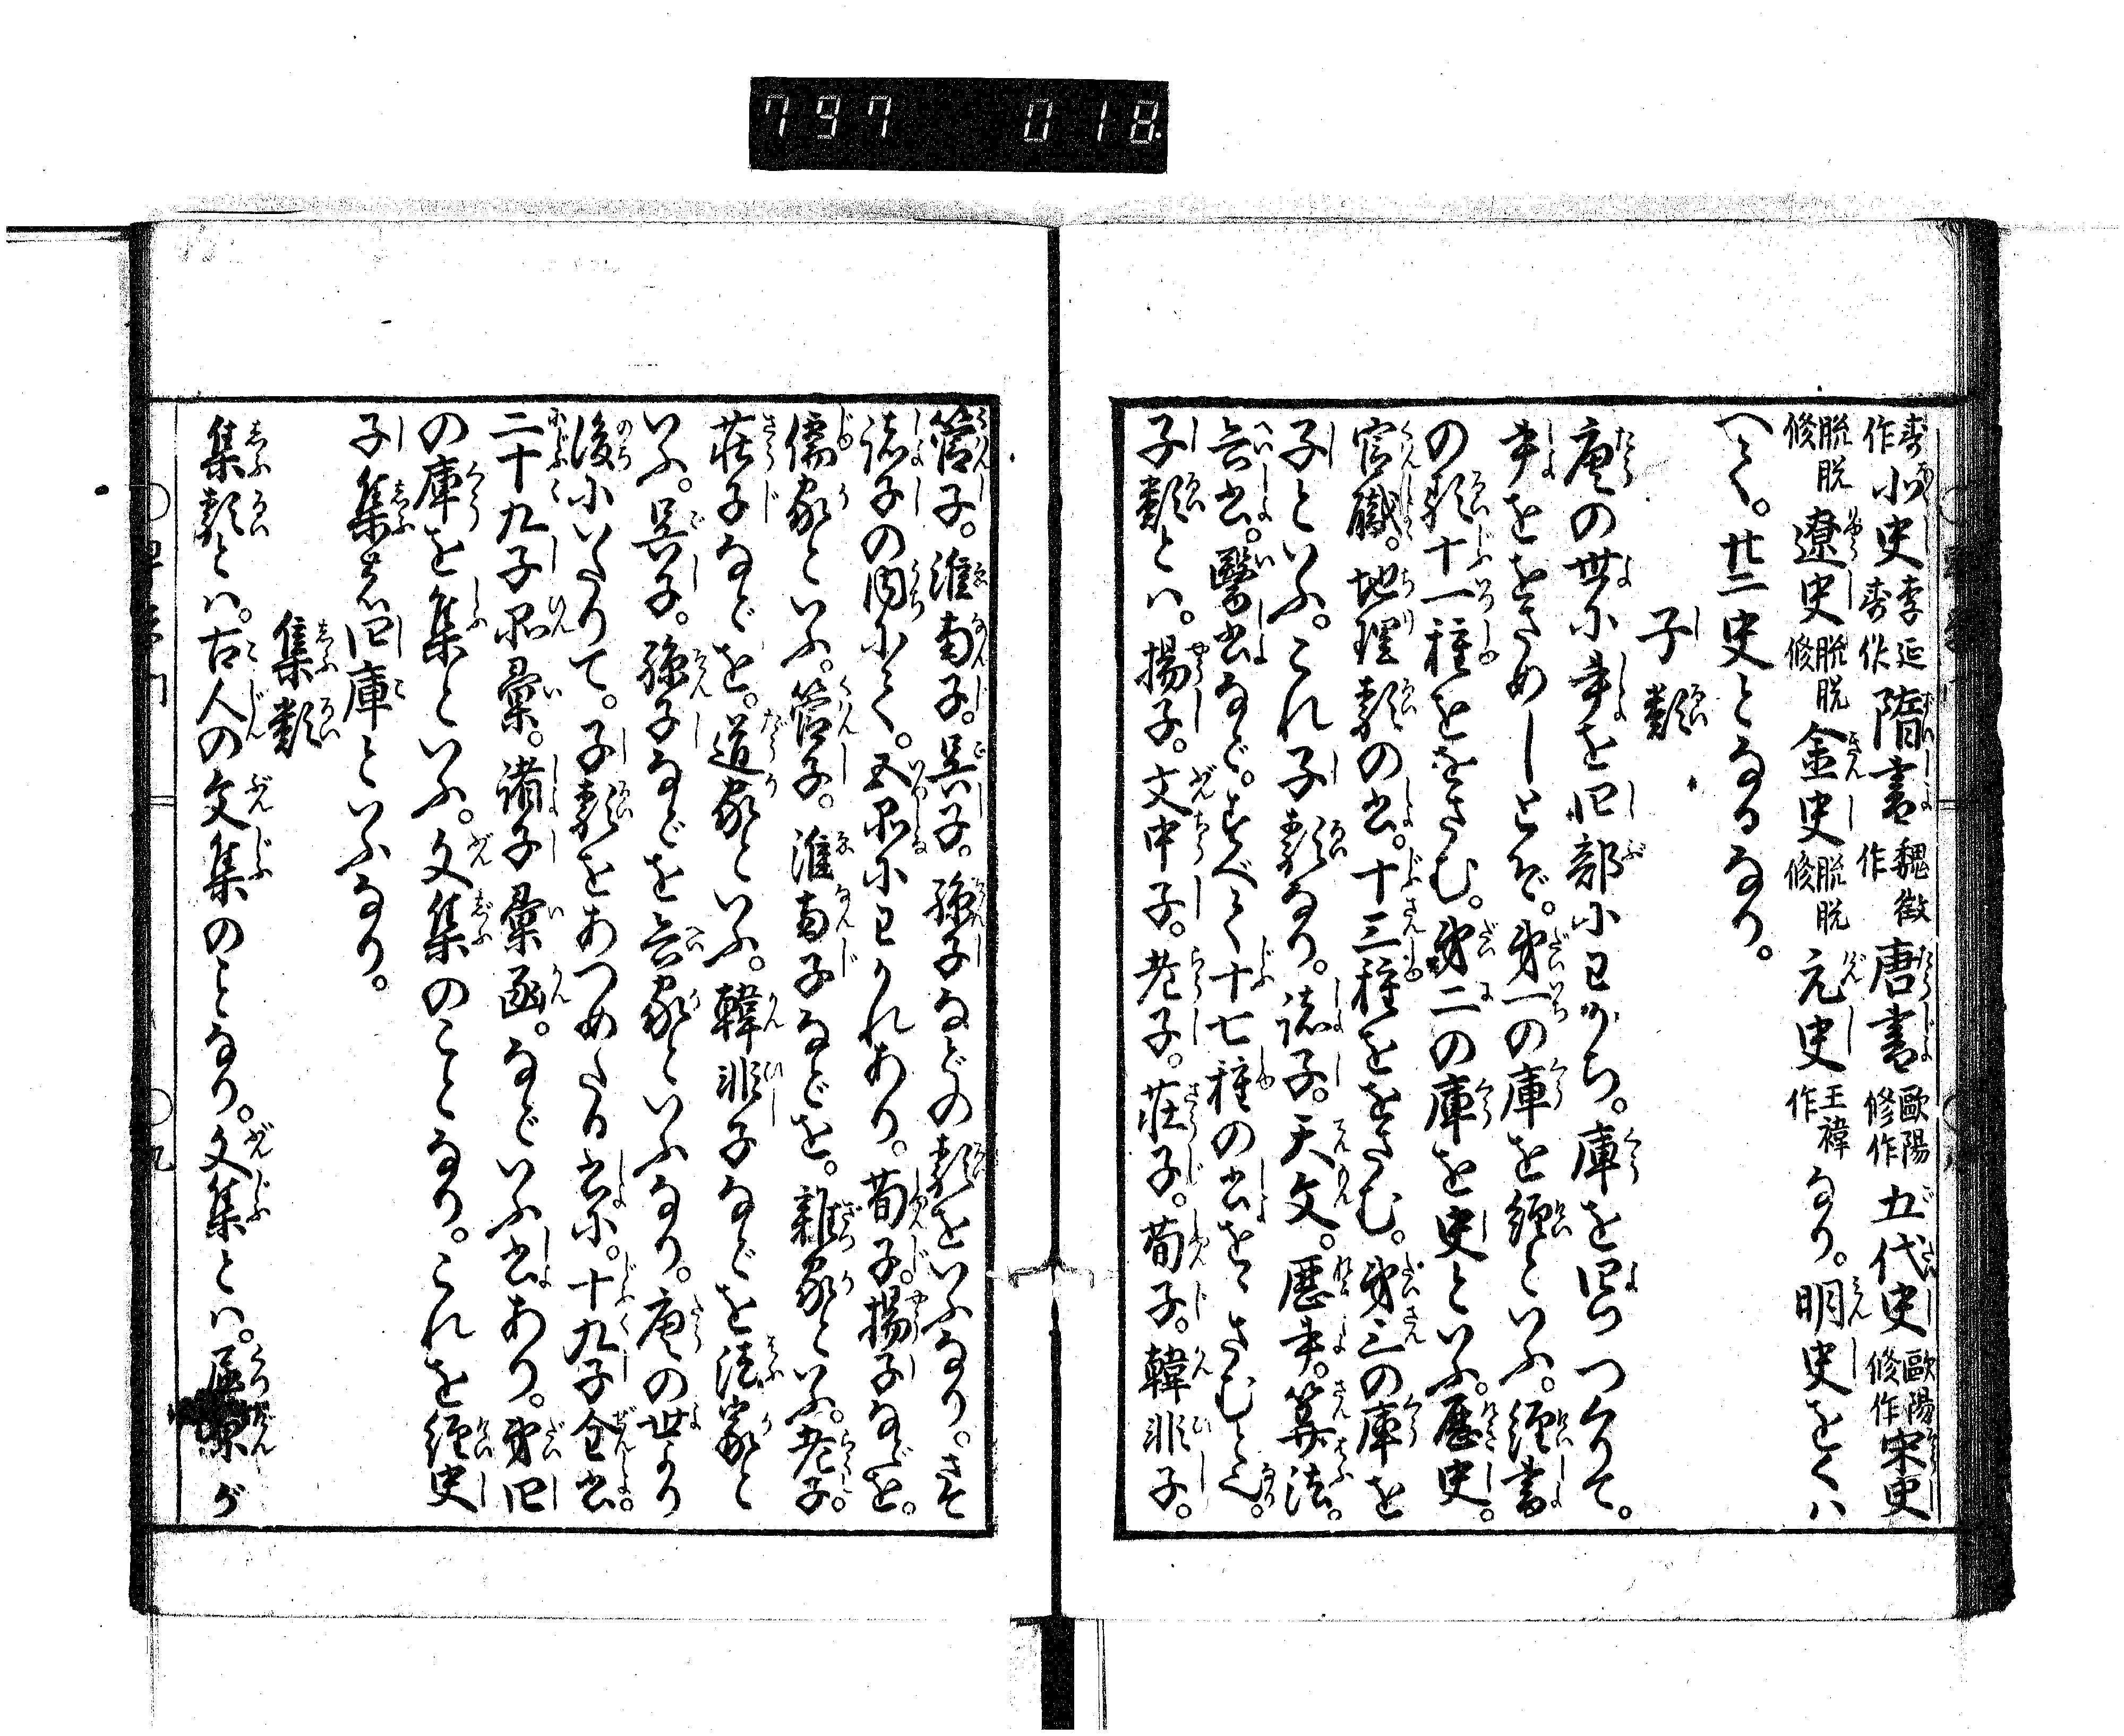 797 018
寿作北史李延寿作隋書魏徴作唐書歐陽修作五代史歐陽修作宋史
脱脱修遼史脱脱修金史脱脱修元史王禕作なり。明史をくハ
へて。廿二史となるなり。
子類
唐の世に書を四部にわかち。庫を四つつくりて。
書ををさめしとぞ。第一の庫を経といふ。経書
の類十一種ををさむ。第二の庫を史といふ。歴史。
官職。地理類の書。十三種ををさむ。第三の庫を
子といふ。これ子類なり。諸子。天文。暦書。算法。
兵書。医書など。すべて十七種の書ををさむる也。
子類とハ。揚子。文中子。老子。荘子。荀子。韓非子。
管子。淮南子。呉子。孫子などの類をいふなり。さて
諸子の内にて。五品にわかれあり。荀子。揚子などを。
儒家といふ。管子。淮南子などを。雑家といふ。老子。
荘子などを。道家といふ。韓非子などを法家と
いふ。呉子。孫子などを兵家といふなり。唐の世より
後にいたりて。子類をあつめたる書に。十九子全書。
二十九子品彙。諸子彙函。などいふ書あり。第四
の庫を集といふ。文集のことなり。これを経史
子集の四庫といふなり。
集類
集類とハ。古人の文集のことなり。文集とハ。屈原が